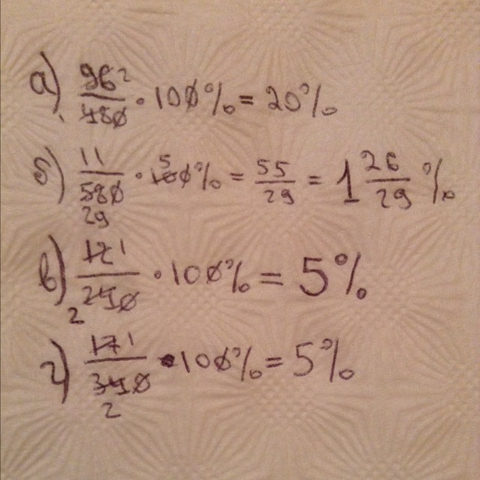 а) 96²/480 · 100% = 20%
б) 11/580 29 · 100 5% = 55/29 = 1 26/29 %
в) 12 1/240 2 · 100% = 5%
г) 17 1/340 2 · 100% = 5%